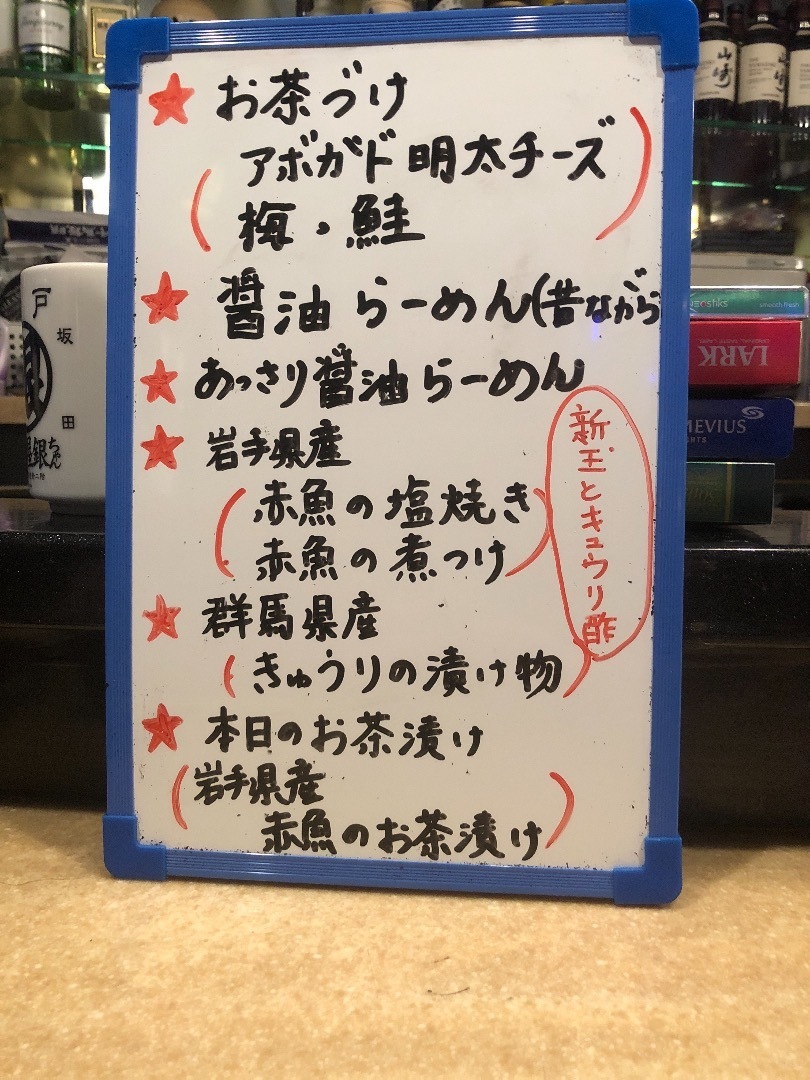 お茶づけ
アボガド明太チーズ
梅・鮭
醤油らーめん(昔ながら
あっさり醤油らーめん
岩手県産
赤魚の塩焼き
赤魚の煮つけ
新玉とキュウリ酢
群馬県産
きゅうりの漬け物
本日のお茶漬け
岩手県産
赤魚のお茶漬け
戸
坂
田
銀ちゃん
山崎
山崎
smooth fresh
LARK
MEVIUS